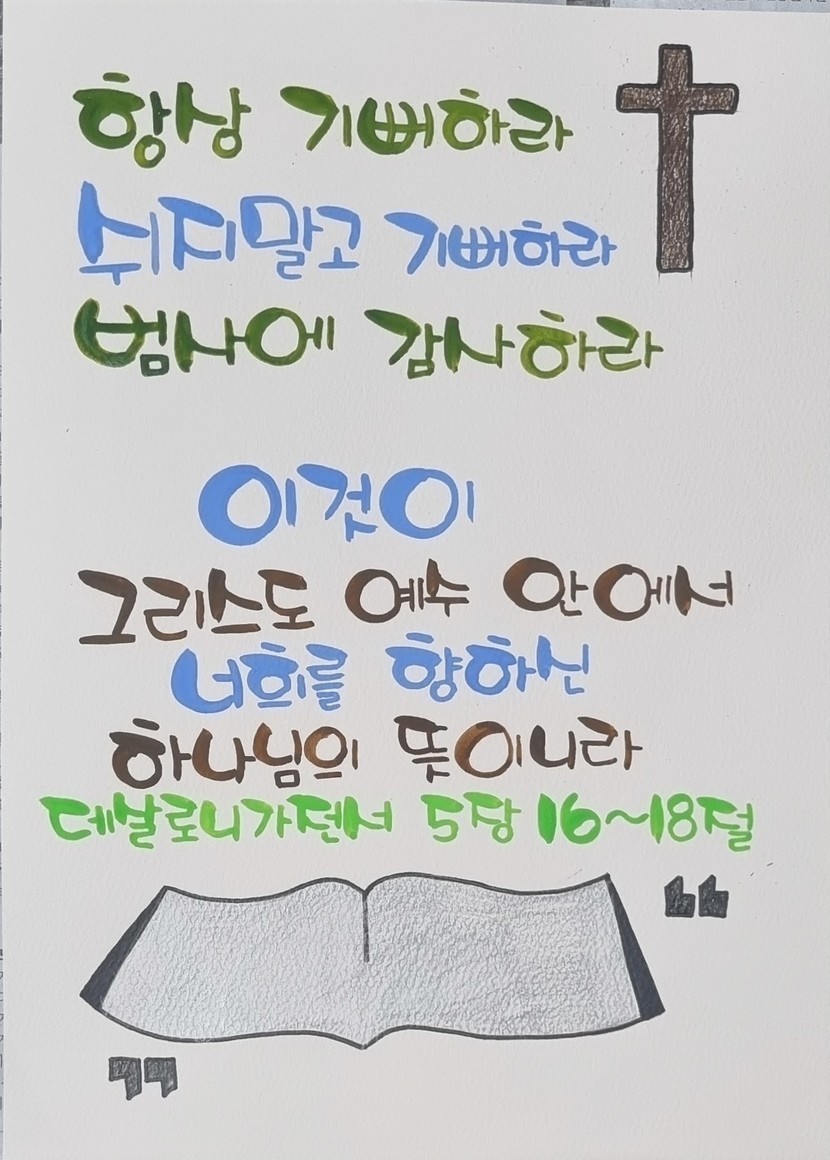 항상 기뻐하라
쉬지말고 기뻐하라
범사에 감사하라
이것이
그리스도 예수 안에서
너희를 향하신
하나님의 뜻이니라
데살로니가전서 5장 16~18절